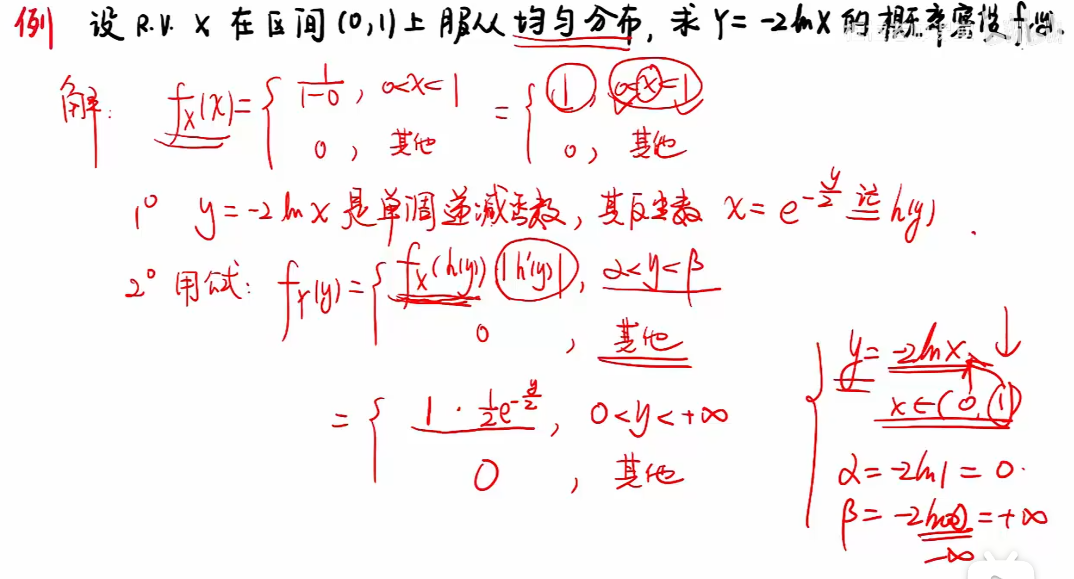 例 设 R.V. X 在区间(0,1)上服从均匀分布, 求 Y=-2lnX 的概率密度 f_Y(y).
解: f_X(x)={ 1/(1-0), 0<x<1 ={ 1, 0<x<1
0, 其他 0, 其他
1° y=-2lnx 是单调递减函数, 其反函数 x=e^{-y/2} 记 h(y).
2° 用公式: f_Y(y)={ f_X(h(y))|h'(y)|, α<y<β
0, 其他
={ 1·½e^{-y/2}, 0<y<+∞
0, 其他
y=-2lnx ↓
x∈(0,1)
α=-2ln1=0.
β=-2ln0=+∞
-∞